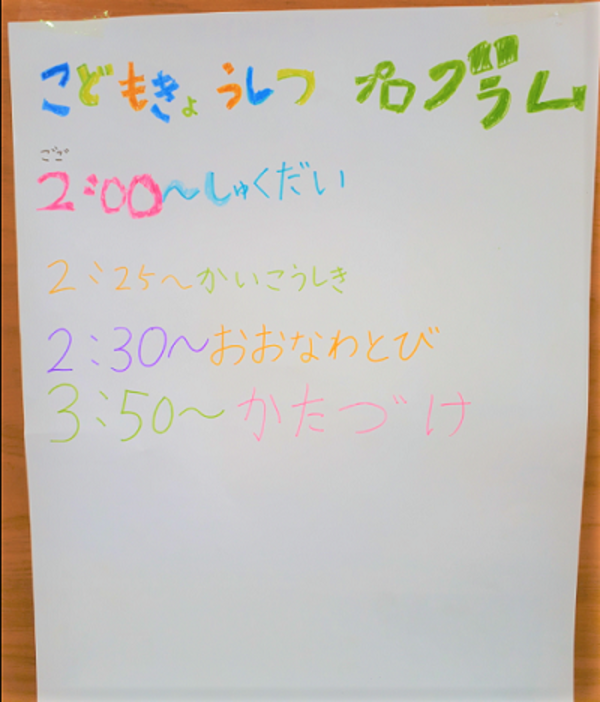 こどもきょうしつ プログラム
ごご
2:00～しゅくだい
2:25～かいこうしき
2:30～おおなわとび
3:50～かたづけ